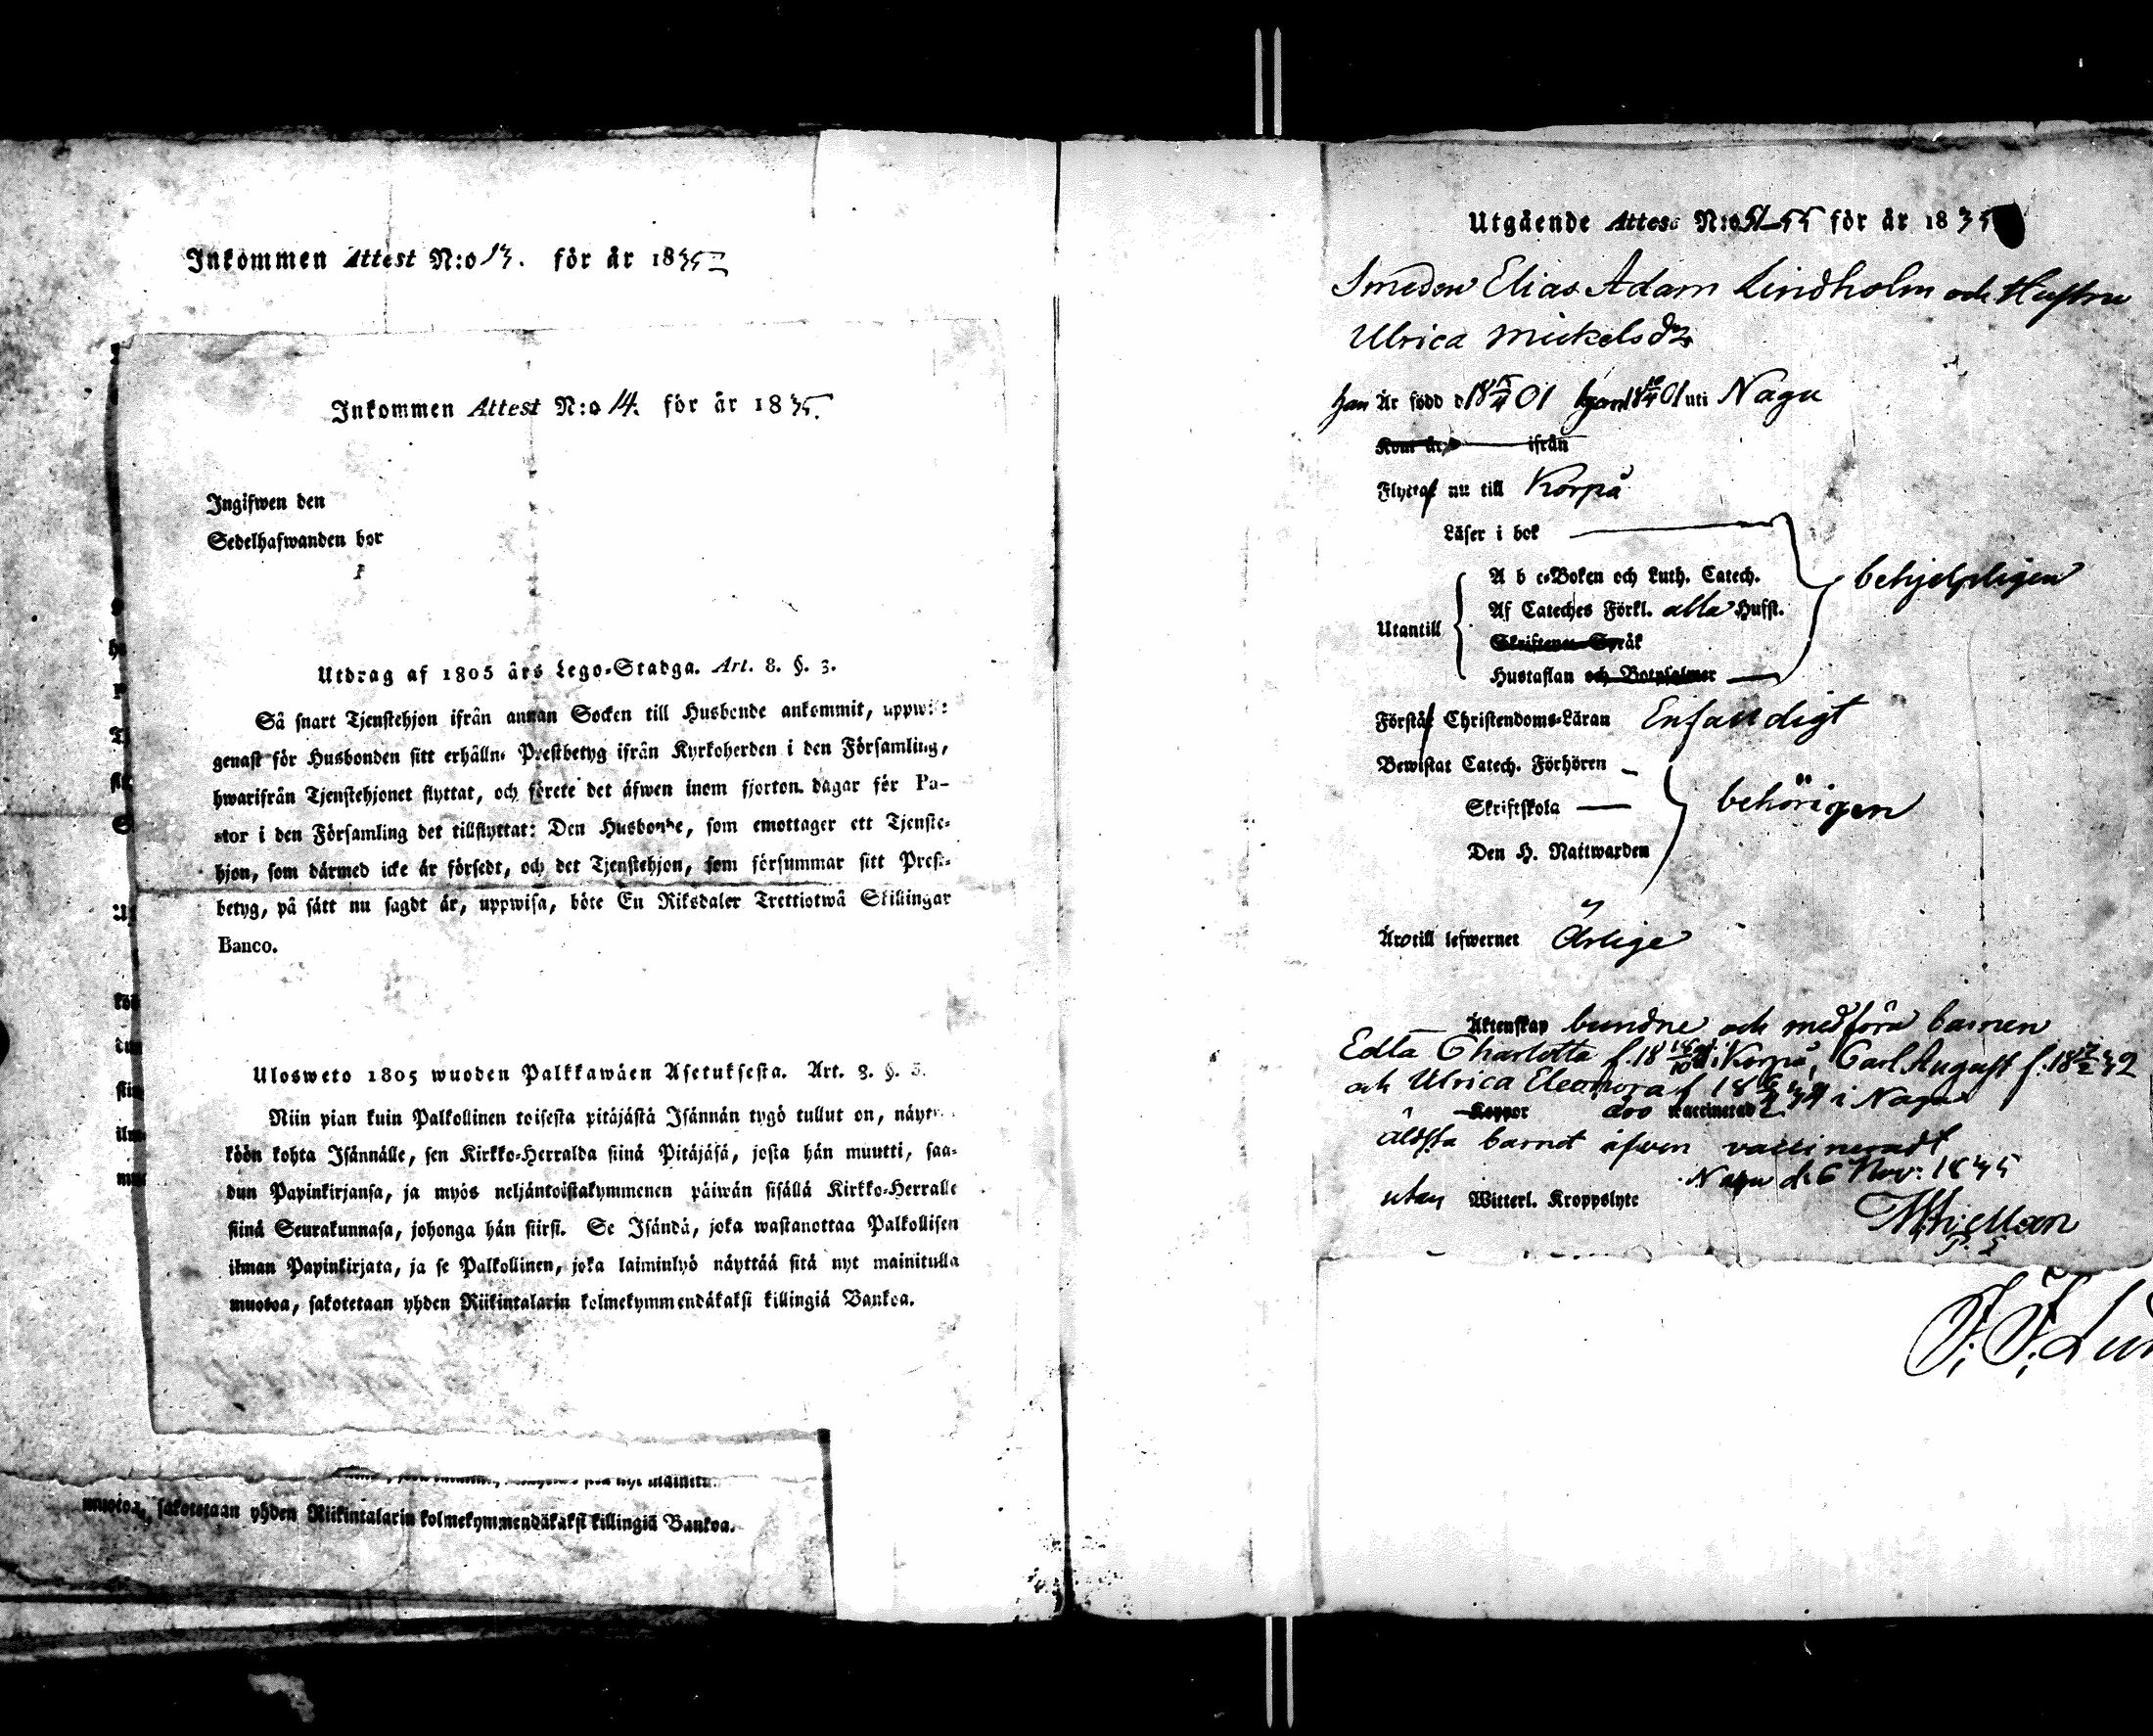 Inkommen Attest N:o 13. för år 1835
Inkommen Attest N:o 14. för år 1835.
Ingifwen den
Sedelhafwanden bor
Utdrag af 1805 års Lego-Stadga. Art. 8. §. 3.
Så snart Tjenstehjon ifrån annan Socken till Husbonde ankommit, uppwise
genast för Husbonden sitt erhållne Prestbetyg ifrån Kyrkoherden i den Församling,
hwarifrån Tjenstehjonet flyttat, och förete det äfwen inom fjorton dagar för Pa-
stor i den Församling det tillflyttat: Den Husbonde, som emottager ett Tjenste-
hjon, som därmed icke är försedt, och det Tjenstehjon, som försummar sitt Prest-
betyg, på sätt nu sagdt är, uppwisa, böte En Riksdaler Trettiotwå Skillingar
Banco.
Ulosweto 1805 wuoden Palkkawäen Asetuksesta. Art. 8. §. 3.
Niin pian kuin Palkollinen toisesta pitäjästä Isännän tygö tullut on, näyttä-
köön kohta Isännälle, sen Kirkko-Herralda siinä Pitäjäsä, josta hän muutti, saa-
dun Papinkirjansa, ja myös neljäntoistakymmenen päiwän sisällä Kirkko-Herralle
siinä Seurakunnasa, johonga hän siirsi. Se Isändä, joka wastanottaa Palkollisen
ilman Papinkirjata, ja se Palkollinen, joka laiminlyö näyttää sitä nyt mainitulla
muotoa, sakotetaan yhden Riikintalarin kolmekymmendäkaksi killingiä Bankoa.
muotoa, sakotetaan yhden Riikintalarin kolmekymmendäkaksi killingiä Bankoa.
Utgående Attest N:o 51-55 för år 1835
Smeden Elias Adam Lindholm och Hustru
Ulrica Mickelsdr
han Är född d 01 hon 01 uti Nagu
Kom år ifrån
Flytta nu till Korpå
Läser i bok
A b c-Boken och Luth. Catech. behjelpligen
Af Cateches Förkl. alla Husst.
Utantill
Skriftenes Språk
Hustaflan och Botpsalmer
Förstå Christendoms-Läran Enfaldigt
Bewistat Catech. Förhören
Skriftskola behörigen
Den H. Nattwarden
Äro till lefwernet Ärlige
Äktenskap bundne och medföra barnen
Edla Charlotta f. 18 i Korpå, Carl August f. 18 32
och Ulrica Eleonora f 18 34 i Nagu
Koppor äro vaccinerad
äldsta barnet äfwen vaccineradt
Nagu d. 6 Nov: 1835
utan Witterl. Kroppslyte
P. L.